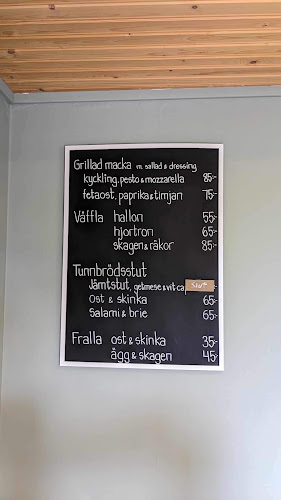 Grillad macka m. sallad & dressing
kyckling, pesto & mozzarella 85:-
fetaost, paprika & timjan 75:-
Våffla hallon 55:-
hjortron 65:-
skagen & räkor 85:-
Tunnbrödsstut
Jämtstut, getmese & vitcal Slut
ost & skinka 65:-
salami & brie 65:-
Fralla ost & skinka 35:-
ägg & skagen 45:-